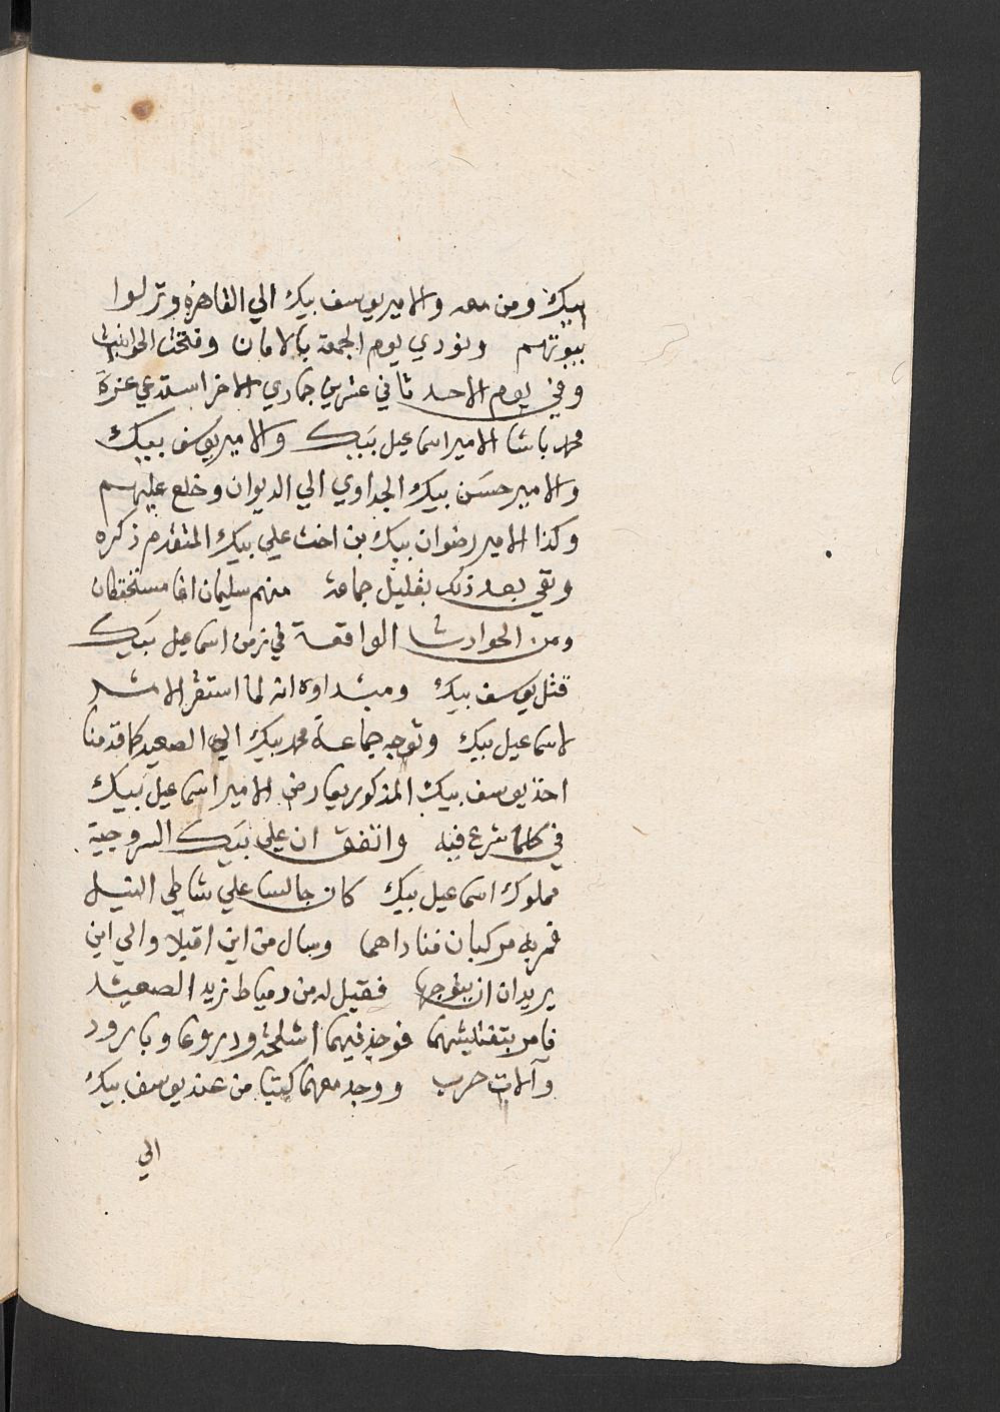 بيك ومن معه والامير يوسف بيك الي القاهرة ونزلوا
بيوتهم ونودي يوم الجمعة بالامان وفتحت الحوانيت
وفي يوم الاحد ثاني عشرين جمادي الاخر استدعي عزة
محمد باشا الامير اسماعيل بيك والامير يوسف بيك
والامير حسن بيك الجداوي الي الديوان وخلع عليهم
وكذا الامير رضوان بيك بن اخت علي بيك المتقدم ذكره
ونفي بعد ذلك بقليل جماعة منهم سليمان اغا مستحفظان
ومن الحوادث الواقعة في زمن اسماعيل بيك
قتل يوسف بيك ومبداوه انه لما استقر الامر
لاسماعيل بيك وتوجه جماعة محمد بيك الي الصعيد كما قدمنا
اخذ يوسف بيك المذكور يعارض الامير اسماعيل بيك
في كلما شرع فيه واتفق ان علي بيك السروجية
مملوك اسماعيل بيك كان جالسا علي شاطي النيل
فمر به مركبان فناداهما وسال من اين اقبلا والي اين
يريدان ان يتوجها فقيل له من دمياط نريد الصعيد
فامر بتفتيشهما فوجد فيهما اسلحة ودروعا وبارود
وآلات حرب ووجد معهما كتبا من عند يوسف بيك
الي